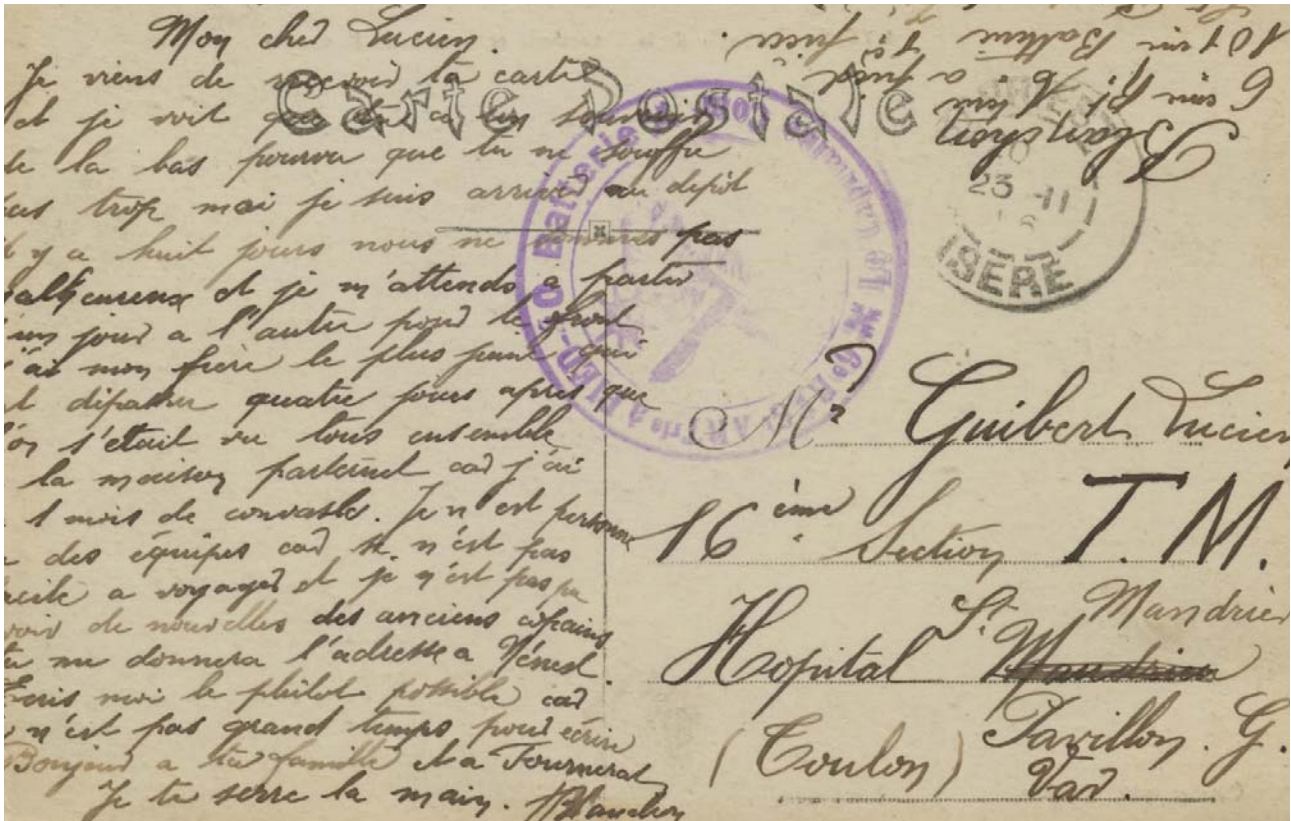 Mon cher Lucien.
Je viens de recevoir ta carte
et je voit que tu a un souvenir
de la bas pourvu que tu ne souffre
pas trop moi je suis arrivé au depôt
il y a huit jours nous ne sommes pas
malheureux et je m'attends a partir
d'un jour a l'autre pour le front
j'ai mon frère le plus jeune qui
quatre jours après que
l'on s'était vu tous ensemble
la maison paternel car j'ai
1 mois de convalsc. Je n'est personne
des équipes car se n'est pas
facile a voyager et je n'est pas pu
avoir de nouvelles des anciens copains
tu me donnera l'adresse a Vénest.
Ecris moi le plutot possible car
je n'est pas grand temps pour écrire
Bonjour a ta famille et a Fournerat
Je te serre la main. Blanchon
Carte Postale
Blanchon
6ème a pied
101ème Battrie 1ère pièce
60e Batterie
ISERE
23 -11
Mr Guibert Lucien
16ème Section T. M.
Hopital St Mandrier
Pavillon. G.
(Toulon) Var.